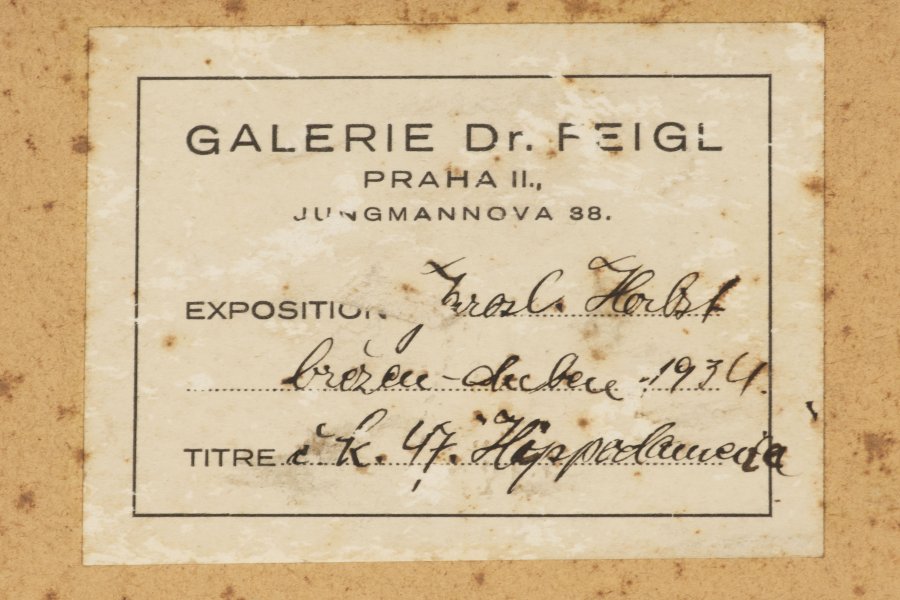 GALERIE Dr. FEIGL
PRAHA II.,
JUNGMANNOVA 38.
EXPOSITION Jarosl. Horbst
březen - duben 1934.
TITRE č. k. 47. Hippodameia